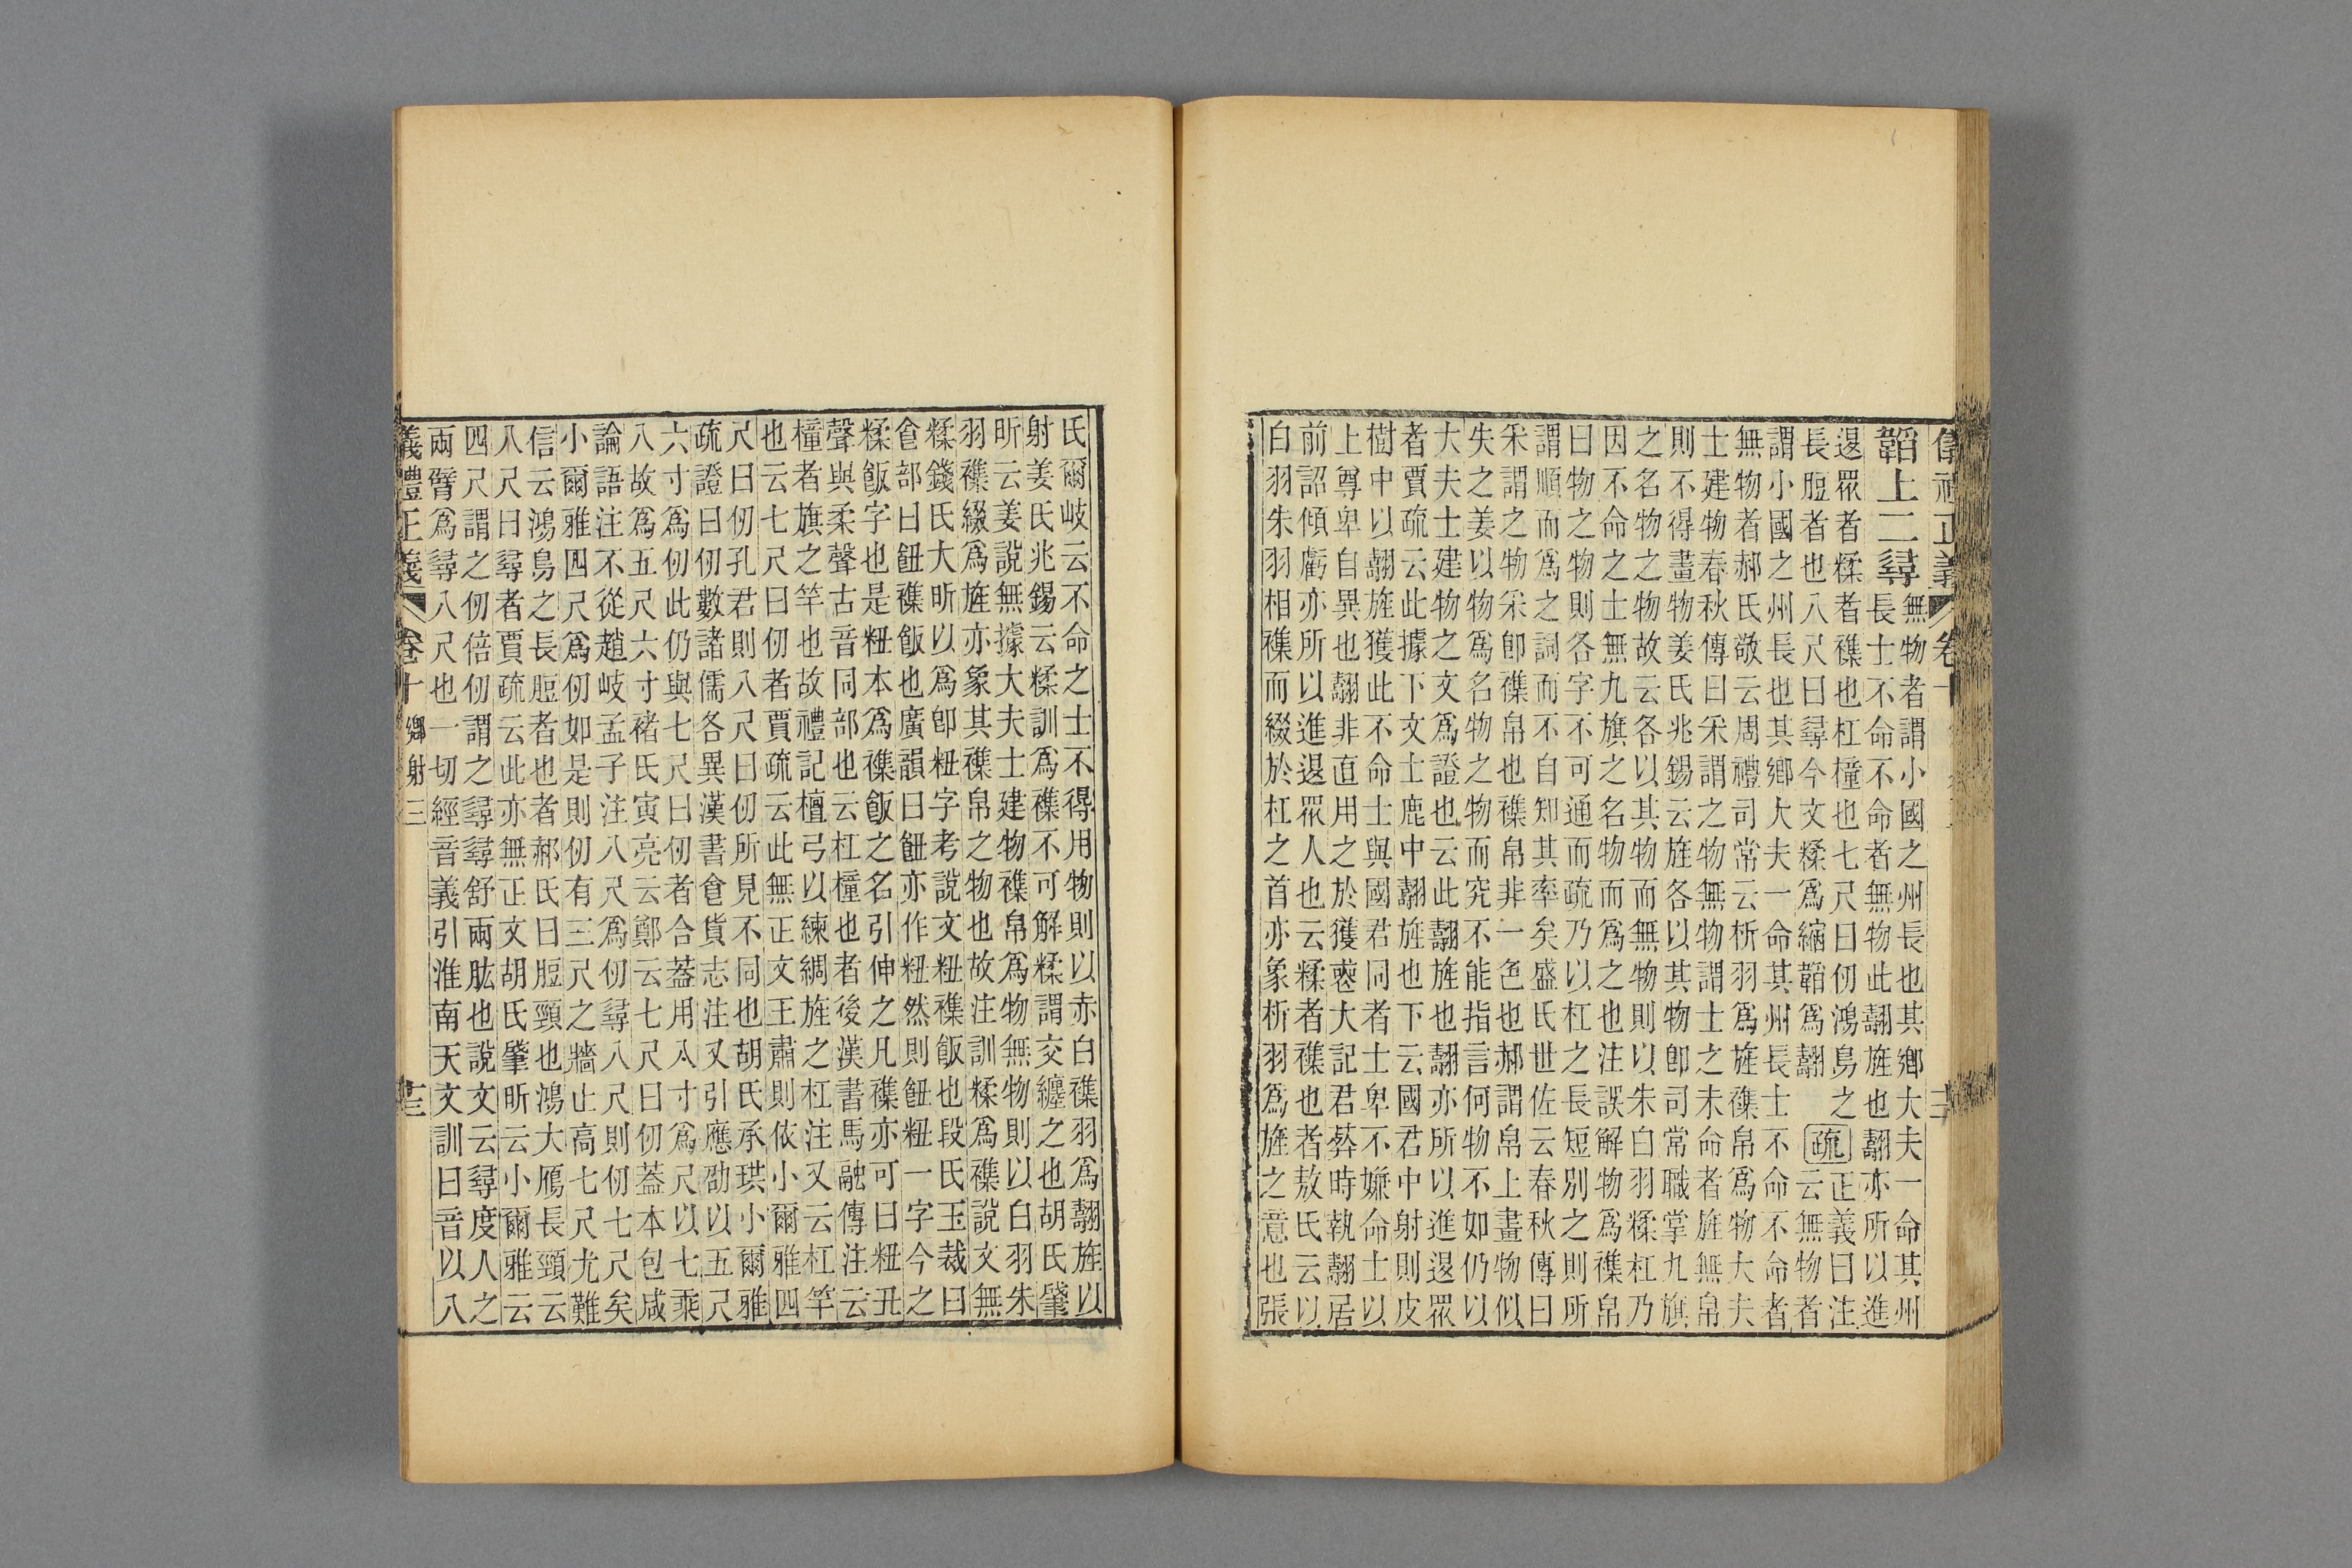 儀禮正義 卷十
韜上二尋無物者謂小國之州長也其鄉大夫一命其州
長士不命不命者無物此翿旌也翿亦所以進
退眾者糅者襍也杠橦也七尺曰仞鴻鳥之
長脰者也八尺曰尋今文糅爲縮韜爲翿疏正義曰注云無物者
謂小國之州長也其鄉大夫一命其州長士不命不命者
無物者郝氏敬云周禮司常云析羽爲旌襍帛爲物大夫
士建物春秋傳曰采謂之物無物謂士之未命者旌無帛
則不得畫物姜氏兆錫云旌各以其物卽司常職掌九旗
之名物之物故云各以其物而無物則以朱白羽糅杠乃
因不命之士無九旗之名物而爲之也注誤解物爲襍帛
曰物之物則各字不可通而疏乃以杠之長短別之則所
謂順而爲之詞而不自知其率矣盛氏世佐云春秋傳曰
采謂之物采卽襍帛也襍帛非一色也郝謂帛上畫物似
失之姜以物爲名物之物而究不能指言何物不如仍以
大夫士建物之文爲證也云此翿旌也翿亦所以進退眾
者賈疏云此據下文士鹿中翿旌也下云國君中射則皮
樹中以翿旌獲此不命士與國君同者士卑不嫌命士以
上尊卑自異也翿非直用之於獲大記君葬時執翿居
前詔傾虧亦所以進退眾人也云糅者襍也者敖氏云以
白羽朱羽相襍而綴於杠之首亦象析羽爲旌之意也張
氏爾岐云不命之士不得用物則以赤白襍羽爲翿旌以
射姜氏兆錫云糅訓爲襍不可解糅謂交纏之也胡氏肇
昕云姜說無據大夫士建物襍帛爲物無物則以白羽朱
羽襍綴爲旌亦象其襍帛之物也故注訓糅爲襍說文無
糅錢氏大昕以爲卽粈字考說文粈襍飯也段氏玉裁曰
食部曰飷襍飯也廣韻曰飷亦作粈然則飷粈一字今之
糅飯字也是粈本爲襍飯之名引伸之凡襍亦可曰粈丑
聲與柔聲古音同部也云杠橦也者後漢書馬融傳注云
橦者旗之竿也故禮記檀弓以練綢旌之杠注又云杠竿
也云七尺曰仞者賈疏云此無正文王肅則依小爾雅四
尺曰仞孔君則八尺曰仞所見不同也胡氏承珙小爾雅
疏證曰仞數諸儒各異漢書食貨志注又引應劭以五尺
六寸爲仞此仍與七尺曰仞者合葢用八寸爲尺以七乘
八故爲五尺六寸褚氏寅亮云鄭云七尺曰仞葢本包咸
論語注不從趙岐孟子注八尺爲仞尋八尺則仞七尺矣
小爾雅四尺爲仞如是則仞有三尺之牆止高七尺尤難
信云鴻鳥之長脰者也者郝氏曰脰頸也鴻大鴈長頸云
八尺曰尋者賈疏云此亦無正文胡氏肇昕云小爾雅云
四尺謂之仞倍仞謂之尋尋舒兩肱也說文云尋度人之
兩臂爲尋八尺也一切經音義引淮南天文訓曰音以八
儀禮正義 卷十 鄉射三 十三